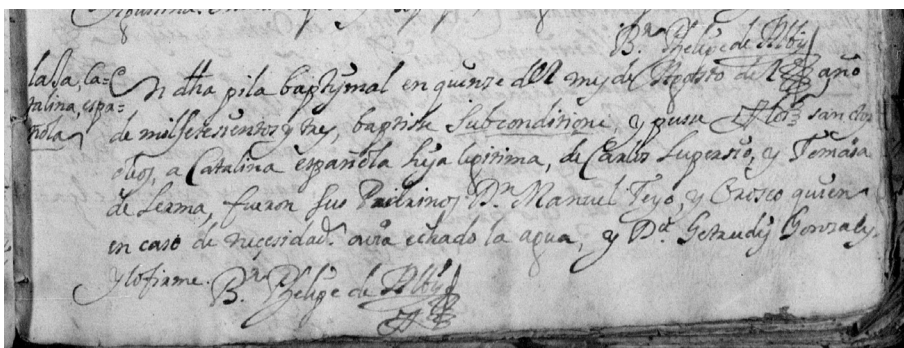 Br. Phelipe de Alby
la Sa, Ca=
talina, espa=
ñola
En dha pila baptysmal en quense del mes de Agosto de año
de mil setessientos y tres, baptise Subconditione, y puse los sanctos
oleos, a Catalina española hija legitima, de Carlos Supersio, y Tomasa
de Lerma, fueron sus Padrinos Dn. Manuel Teyo, y Orosco quien
en caso de necesidad. avia echado la agua, y Da. Getrudis Gonzales,
y lo firme.
Br. Phelipe de Alby